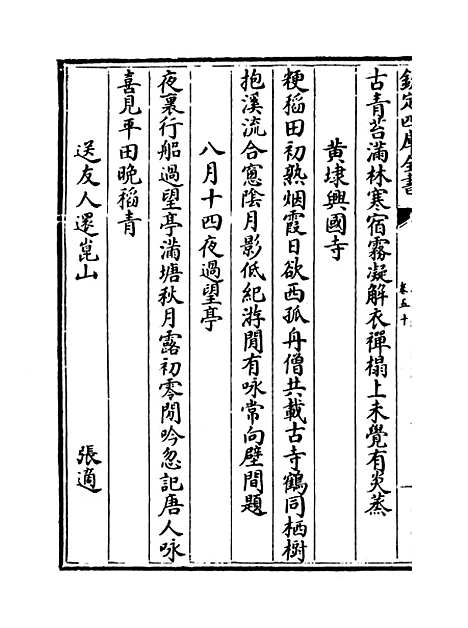 欽定四庫全書
卷五十
古青苔滿林寒宿霧凝解衣禪榻上未覺有炎蒸
黄埭興國寺
粳稻田初熟烟霞日欲西孤舟僧共載古寺鶴同栖樹
抱溪流合窻陰月影低紀游閒有咏常向壁間題
八月十四夜過望亭
夜裏行船過望亭滿塘秋月露初零閒吟忽記唐人咏
喜見平田晚稻青
送友人還崑山 張適